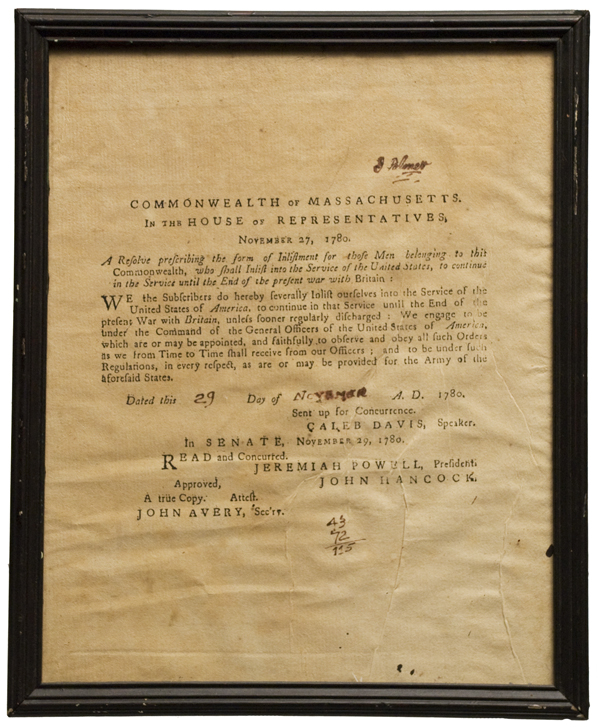 COMMONWEALTH OF MASSACHUSETTS.
IN THE HOUSE OF REPRESENTATIVES,
NOVEMBER 27, 1780.
A Resolve prescribing the form of Inlistment for those Men belonging to this
Commonwealth, who shall Inlist into the Service of the United States, to continue
in the Service until the End of the present war with Britain :
WE the Subscribers do hereby severally Inlist ourselves into the Service of the
United States of America, to continue in that Service until the End of the
present War with Britain, unless sooner regularly discharged : We engage to be
under the Command of the General Officers of the United States of America,
which are or may be appointed, and faithfully to observe and obey all such Orders
as we from Time to Time shall receive from our Officers ; and to be under such
Regulations, in every respect, as are or may be provided for the Army of the
aforesaid States.
Dated this 29 Day of November A. D. 1780.
Sent up for Concurrence.
CALEB DAVIS, Speaker.
In SENATE, NOVEMBER 29, 1780.
READ and Concurred.
JEREMIAH POWELL, President.
Approved, JOHN HANCOCK.
A true Copy. Attest.
JOHN AVERY, Sec'ry.
43
72
115